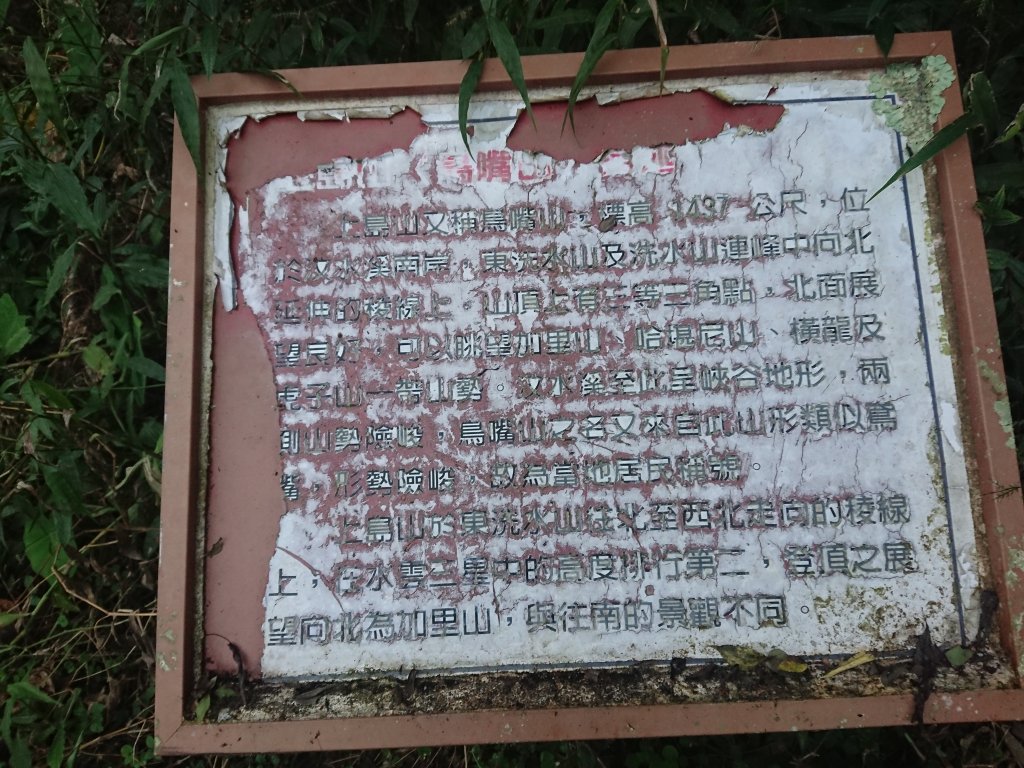 鳥嘴山
上島山又稱鳥嘴山，標高 1437 公尺，位
於汶水溪南岸，東洗水山及洗水山連峰中向北
延伸的稜線上。山頂上有三等三角點，北面展
望良好，可以眺望加里山、哈堪尼山、橫龍及
虎子山一帶山勢。汶水溪至此呈峽谷地形，兩
側山勢險峻，鳥嘴山之名又來自此山形類似鳶
嘴，形勢險峻，故為當地居民稱號。
上島山於東洗水山往北至西北走向的稜線
上，在水雲三星中的高度排行第二，登頂之展
望向北為加里山，與往南的景觀不同。